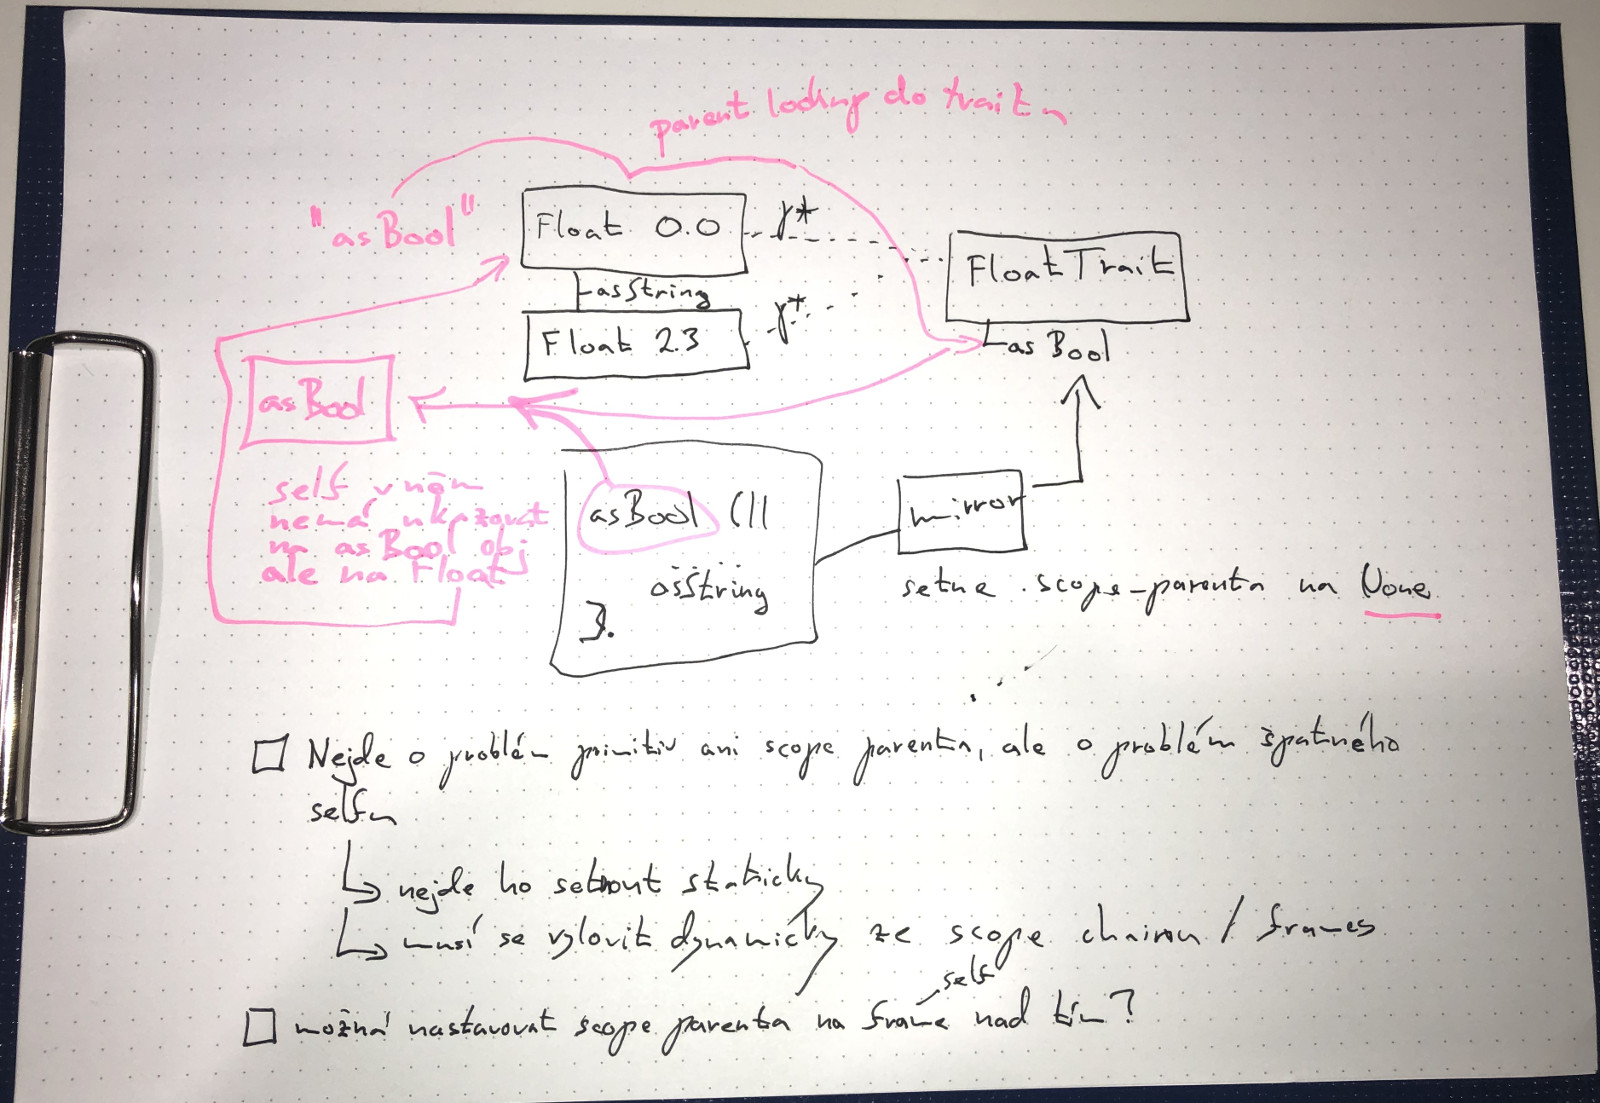 parent lookup do traitu
"asBool"
Float 0.0
p*
FloatTrait
asString
p*
Float 2.3
asBool
asBool
self v něm
nemá ukazovat
na asBool obj
ale na Float
asBool (||
asString
).
mirror
setne scope-parenta na None
Nejde o problém primitiv ani scope parenta, ale o problém špatného
selfu
nejde ho setnout staticky
musí se vylovit dynamicky ze scope chainu / frames
self
možná nastavovat scope parenta na frame nad tím?